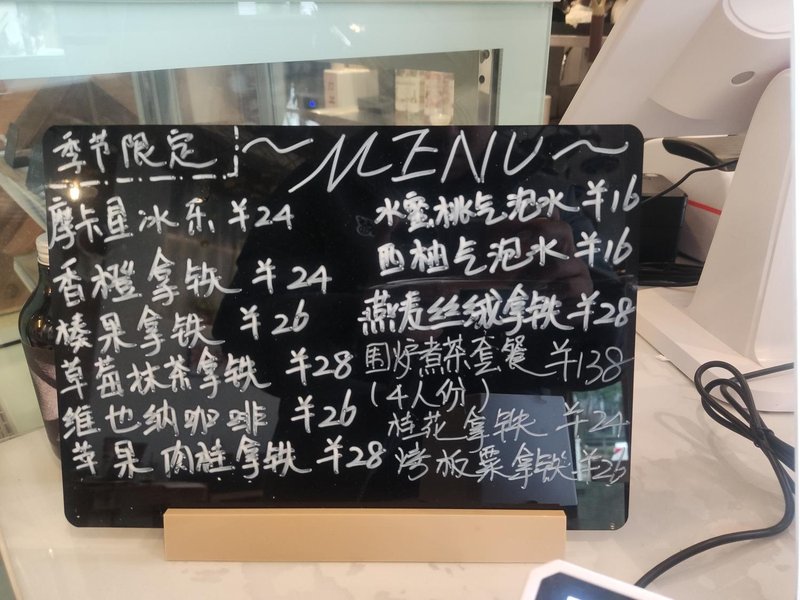 季节限定
~MENU~
摩卡星冰乐 ¥24
香橙拿铁 ¥24
榛果拿铁 ¥26
草莓抹茶拿铁 ¥28
维也纳咖啡 ¥26
苹果肉桂拿铁 ¥28
水蜜桃气泡水 ¥16
西柚气泡水 ¥16
燕麦丝绒拿铁 ¥28
围炉煮茶套餐 ¥138
(4人份)
桂花拿铁 ¥24
烤板栗拿铁 ¥26